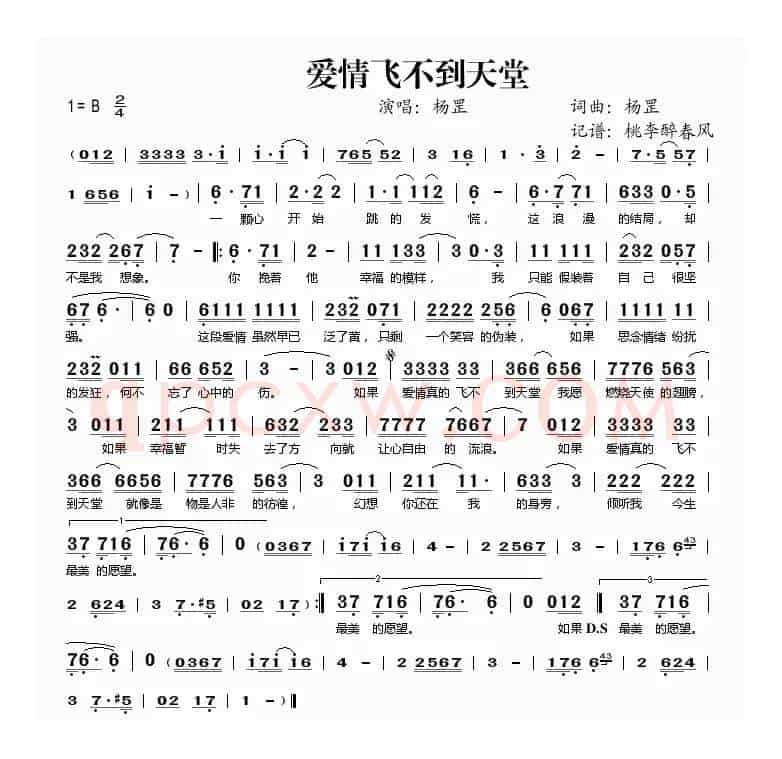 爱情飞不到天堂
1=B 2/4 演唱：杨罡 词曲：杨罡
记谱：桃李醉春风
(012 | 3333 3·i | i·i i | 765 52 | 3 16 | 1·3 | 2 - | 7·5 57 |
1 656 | i - ) | 6·71 | 2·2 2 | 1·1 112 | 6 - | 6·7 71 | 633 0·5 |
一 颗心 开 始 跳 的 发 慌， 这 浪 漫 的结局， 却
232 267 | 7 - ‖: 6·71 | 2 - | 11 133 | 3 0·3 | 11 133 | 232 057 |
不是我 想象。 你 挽着 他 幸福 的模样， 我 只能 假装着 自己 很坚
676· | 6 0 | 6111 1111 | 232 071 | 2222 256 | 6 067 | 1111 11 |
强。 这段爱情 虽然早已 泛了黄，只剩 一个笑容 的伪装， 如果 思念情绪 纷扰
232 011 | 66 652 | 3 - | 3 012 | 3333 33 | 366 656 | 7776 563 |
的发狂，何不 忘了 心中的 伤。 如果 爱情真的 飞不 到天堂 我愿 燃烧天使 的翅膀，
3 011 | 1111 11 | 632 233 | 7777 7667 | 7 012 | 3333 33 |
如果 幸福暂 时失 去了方 向就 让心自由 的 流浪。 如果 爱情真的 飞不
366 6656 | 7776 563 | 3 011 | 1111 21 | 2 633 | 3 033 | 2222 22 |
到天堂 就像是 物是人非 的彷徨， 幻想 你还在 我 的身旁， 倾听我 今生
1
37 716 | 76·6 | 0 (0367 | i7i i6 | 4 - | 2 2567 | 3 - | 176 6 43 |
最美 的愿望。
2 624 | 3 7·#5 | 02 17 ) :‖ 2 37 716 | 76·6 | 0 012 ‖ 3 37 716 |
最美 的愿望。 如果 D.S 最美 的愿望。
76·6 | 0 (0367 | i7i i6 | 4 - | 2 2567 | 3 - | 176 6 43 | 2 624 |
3 7·#5 | 02 17 | 1 - ) ‖
qpcxw.COM